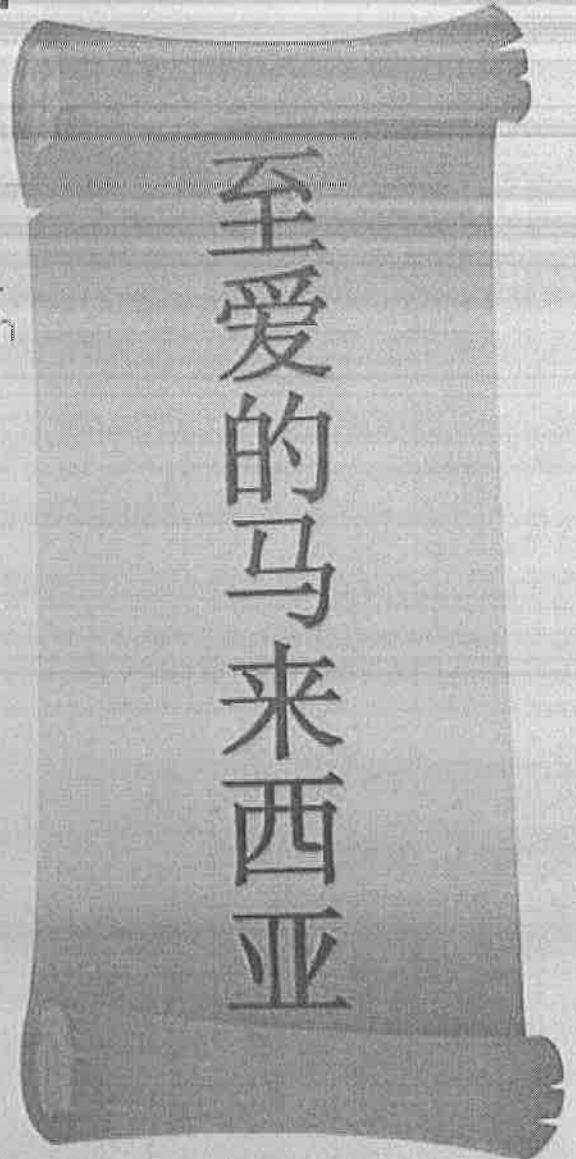 至爱的马来西亚